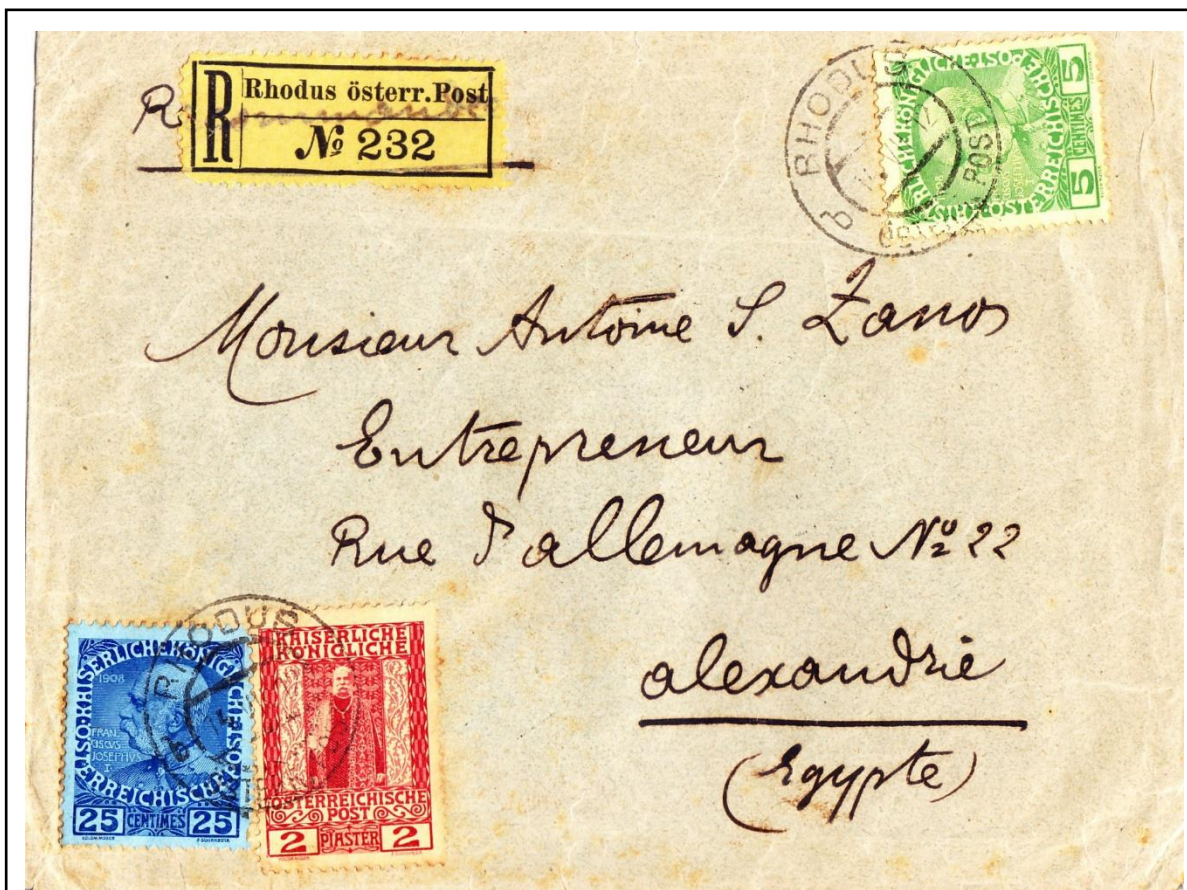 Recommandée
R Rhodus österr. Post
№ 232
b RHODUS
POST
KAISERLICHE KÖNIGLICHE ÖSTERREICHISCHE
5 CENTIMES 5
Monsieur Antoine S. Zanos
Entrepreneur
Rue d'allemagne Nº 22
alexandrie
(Egypte)
RHODUS
b
KAISERLICHE KÖNIGLICHE ÖSTERREICHISCHE
1908
FRAN
CISCVS
JOSEPHVS
I.
25 CENTIMES 25
KAISERLICHE
KÖNIGLICHE
ÖSTERREICHISCHE
POST
2 PIASTER 2